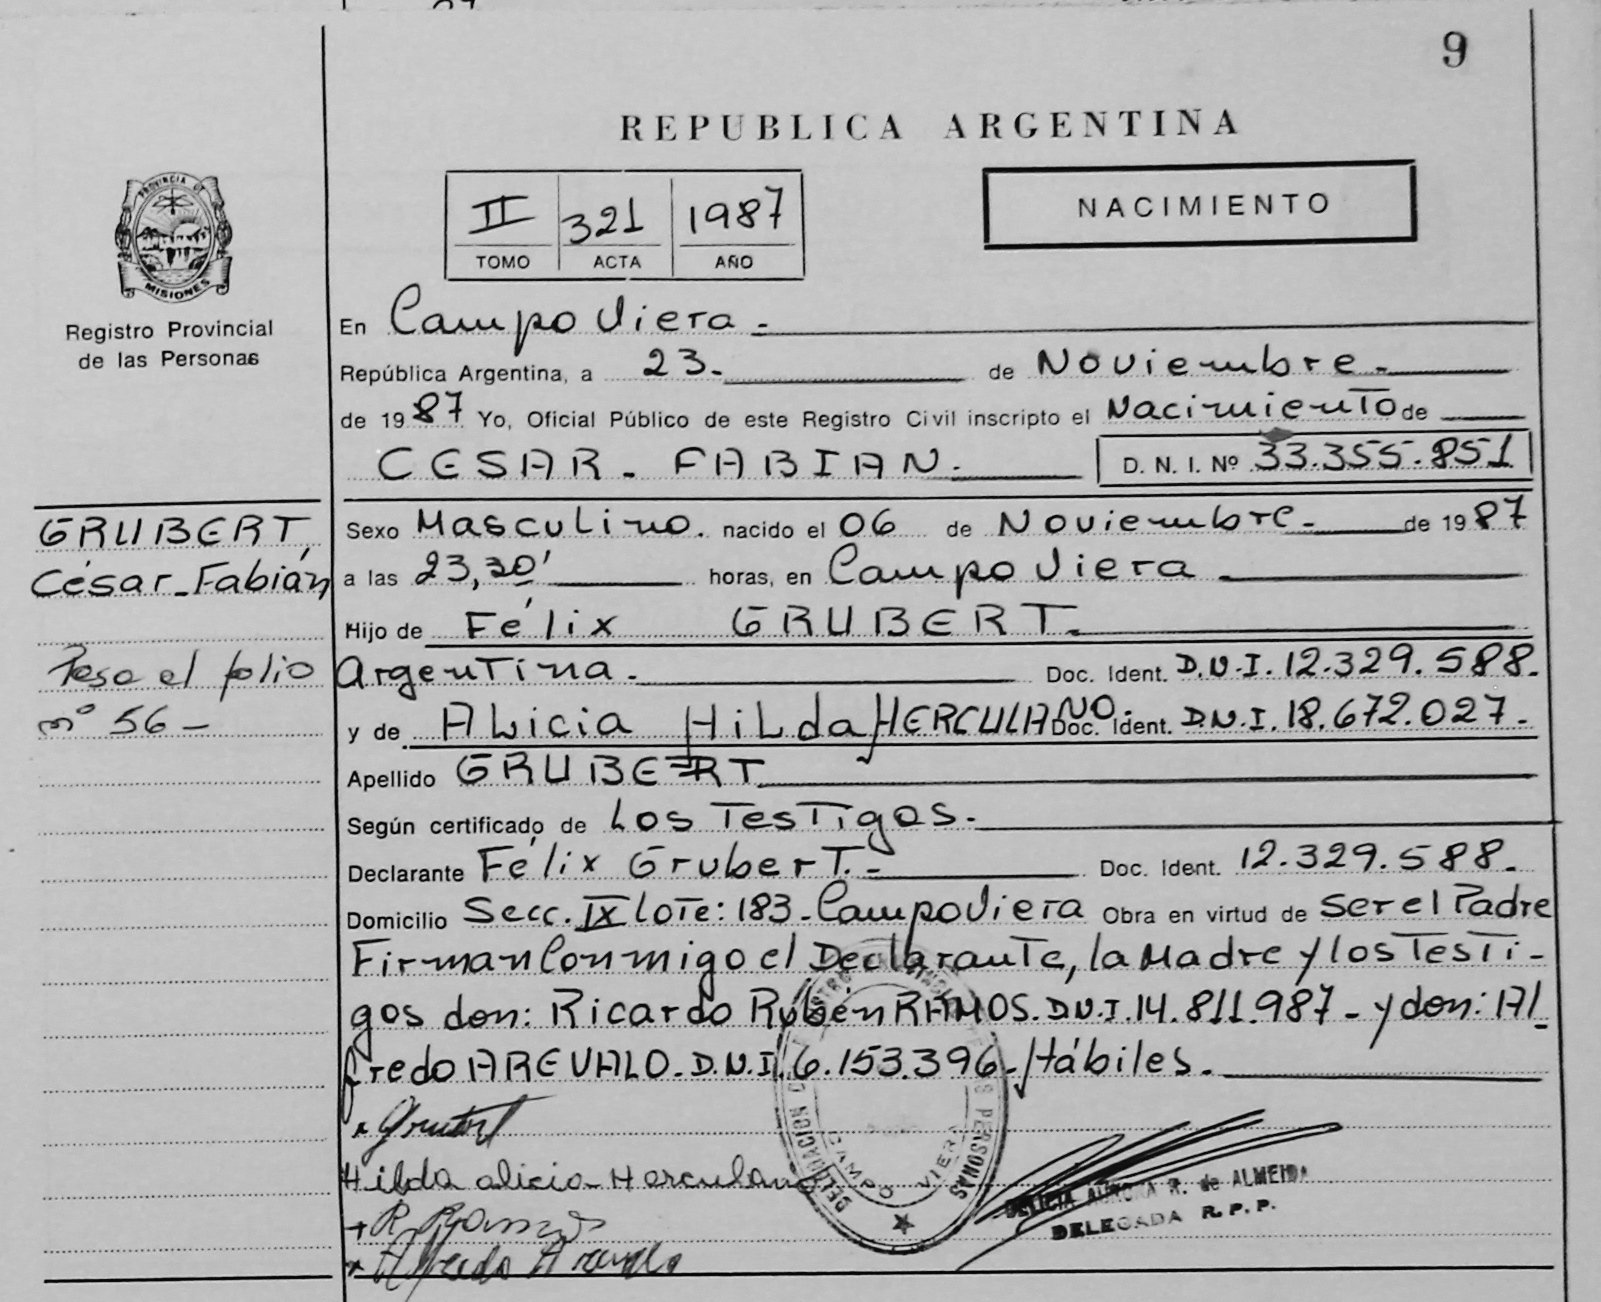 9
REPUBLICA ARGENTINA
II 321 1987
TOMO ACTA AÑO
NACIMIENTO
PROVINCIA DE
MISIONES
Registro Provincial
de las Personas
En Campo Viera.-
República Argentina, a 23.- de Noviembre.-
de 1987 Yo, Oficial Público de este Registro Civil inscripto el Nacimiento de
CESAR - FABIAN.- D. N. I. Nº 33.355.851
GRUBERT,
César-Fabián
Pasa al folio
nº 56 -
Sexo Masculino. nacido el 06 de Noviembre.- de 1987
a las 23,30' horas, en Campo Viera
Hijo de Félix GRUBERT.-
Argentina.- Doc. Ident. D.N.I. 12.329.588.-
y de Alicia Hilda HERCULANO.- Doc. Ident. D.N.I. 18.672.027.-
Apellido GRUBERT
Según certificado de Los Testigos.-
Declarante Félix Grubert.- Doc. Ident. 12.329.588.-
Domicilio Secc. IX Lote: 183-Campo Viera Obra en virtud de ser el Padre
Firman Conmigo el Declarante, la Madre y los Testi-
gos don: Ricardo Rubén RAMOS. D.N.I. 14.811.987 - y don: Al-
fredo AREVALO. D.N.I. 6.153.396 - Hábiles.-
Hilda alicia Herculano
Alfredo Arevalo
DELEGACION
PERSONAS
CAMPO VIERA
AURORA R. de ALMEIDA
DELEGADA R. P. P.